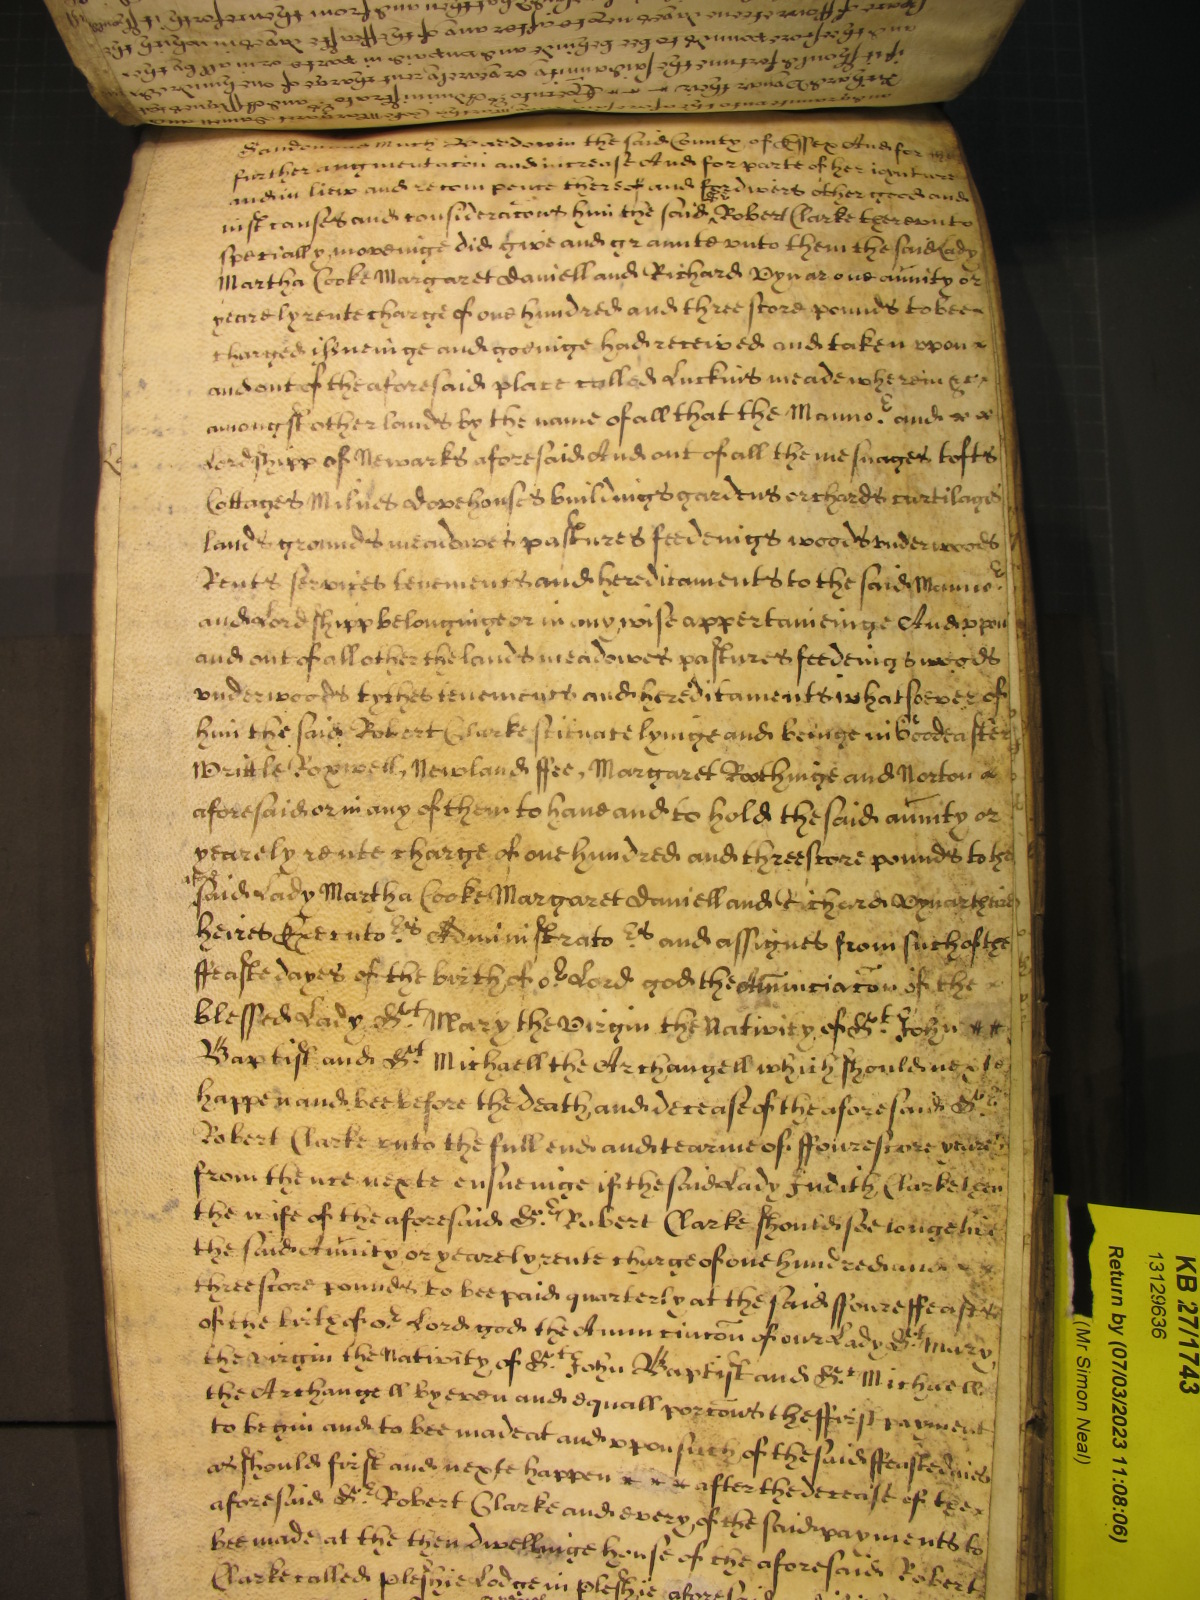 much Baddow in the said County of Essex And for
further augmentacon and increase And for parte of her ioynture
and in liew and recompence thereof and for divers other good and
iust causes and consideracons him the said Sr Robert Clarke therevnto
specially moveinge did give and graunte vnto them the said Lady
Martha Cooke Margaret Daniell and Richard Vynar one anuity or
yearely rente charge of one hundred and three score pounds to bee
charged issueinge and goeinge had received and taken vpon
and out of the aforesaid place called Luckins meade wherein
amongst other lands by the name of all that the Mannor and
Lordshipp of Newarks aforesaid And out of all the mesuages tofts
Cottages Milnes dovehouses buildings gardens orchards curtilages
lands grounds meadowes pastures feedings woods vnderwoods
Rents services tenements and hereditaments to the said Mannor
and Lordshipp belonginge or in any wise apperteineinge And vpon
and out of all other the lands meadowes pastures feedeings woods
vnderwoods tythes tenements and hereditaments whatsoever of
him the said Robert Clarke scituate lyinge and beinge in Goodeaster
Writtle Roxwell, Newland ffee, Margaret Roothinge and Norton
aforesaid or in any of them to have and to hold the said anuity or
yearely rente charge of one hundred and threescore pounds to the
said Lady Martha Cooke Margaret Daniell and Richard Vynar their
heires Executors Administrators and assignes from such of the
ffeaste dayes of the birth of or Lord god the Anunciacon of the
blessed Lady St Mary the Virgin the Nativity of St John
Baptist and St Michaell the Archangell which should nexte
happen and bee before the death and decease of the aforesaid Sr
Robert Clarke vnto the full end and tearme of ffourescore yeares
from thence nexte ensueinge if the said Lady Judith Clarke then
the wife of the aforesaid Sr Robert Clarke should soe longe live
the said Anuity or yearely rente charge of one hundred and
threescore pounds to bee paid quarterly at the said ffoure ffeasts
of the birth of or Lord god the Anunciacon of our Lady St Mary
the virgin the Nativity of St John Baptist and St Michaell
the Archangell by even and equall porcons the ffirst payment
to begin and to bee made at and vpon such of the said ffeaste daies
as should first and nexte happen after the decease of the
aforesaid Sr Robert Clarke and every of the said payments to
bee made at the then dwellinge house of the aforesaid Robert
Clarke called Pleshie Lodge in Pleshie aforesaid
KB 27/1743
13129636
Return by (07/03/2023 11:08:06)
(Mr Simon Neal)